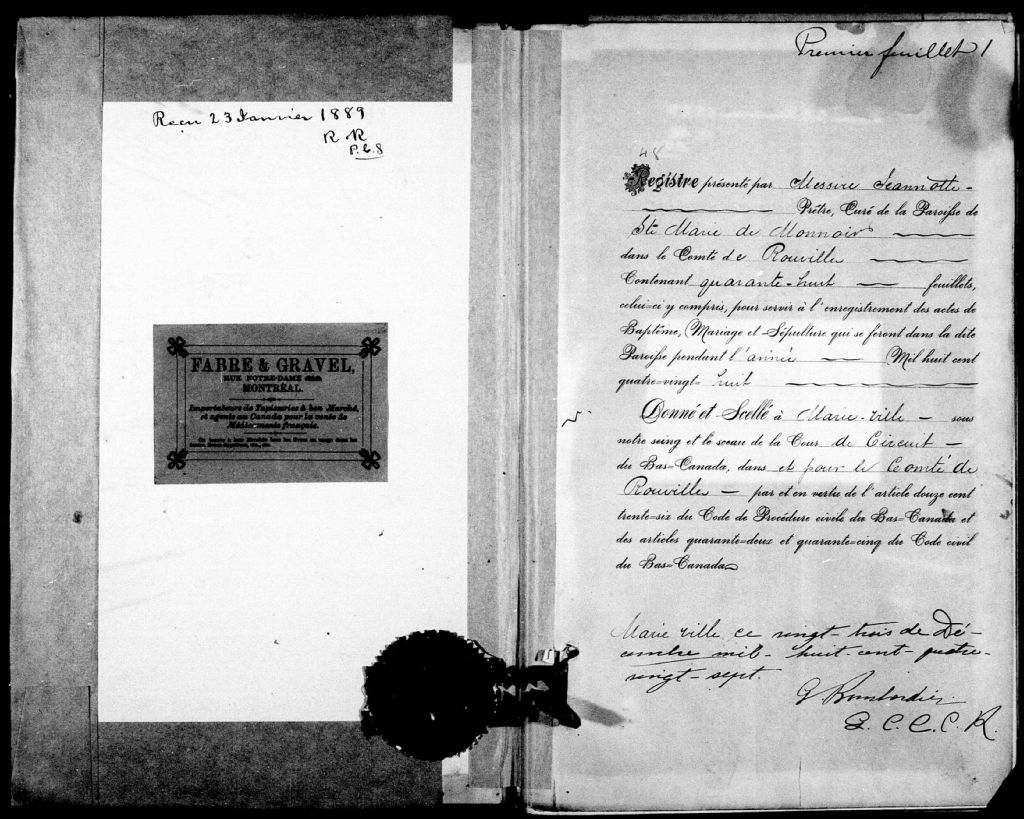 Recu 23 Janvier 1889
R R
P.C.S
FABRE & GRAVEL,
RUE NOTRE-DAME
MONTRÉAL.
Importateurs de Tapisseries à bon Marché,
et agents au Canada pour la vente de
Médicaments français.
Premier feuillet 1
48
Registre présenté par Messire Jeannotte -
Prêtre, Curé de la Paroisse de
Ste Marie de Monnoir
dans le Comté de Rouville
Contenant quarante-huit feuillets,
celui-ci y compris, pour servir à l'enregistrement des actes de
Baptême, Mariage et Sépulture qui se feront dans la dite
Paroisse pendant l'année Mil huit cent
quatre-vingt-huit
Donné et Scellé à Marie-ville - sous
notre seing et le sceau de la Cour de Circuit -
du Bas-Canada, dans et pour le Comté de
Rouville - par et en vertu de l'article douze cent
trente-six du Code de Procédure civile du Bas-Canada et
des articles quarante-deux et quarante-cinq du Code civil
du Bas-Canada
Marie ville ce vingt-trois de Dé-
cembre mil-huit-cent-quatre-
vingt-sept.
G. Bombardier
G. C. C. C. R.